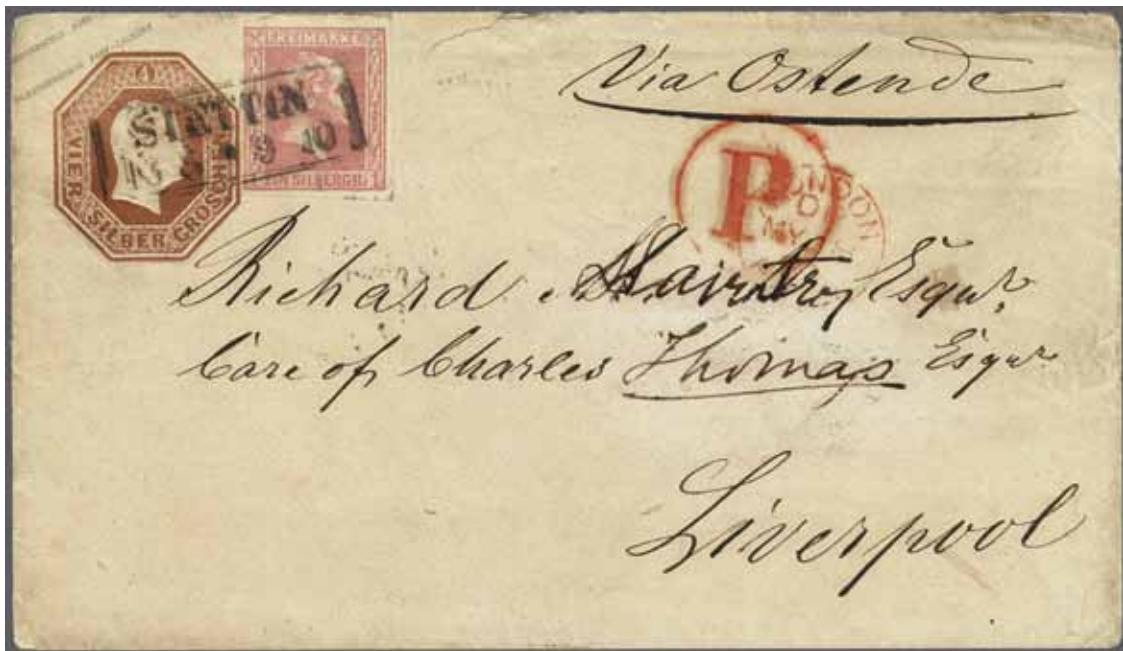 4
VIER SILBER GROSCHEN
FREIMARKE
EIN SILBERGR. 1
STETTIN
Via Ostende
P
LONDON
MY
Richard Esqur.
Care of Charles Thomas Esqur
Liverpool